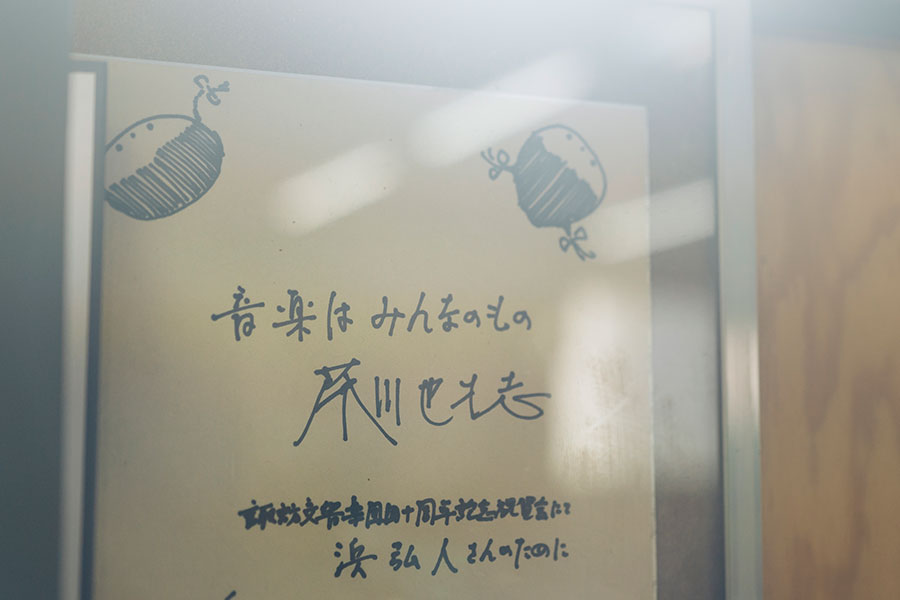 音楽は みんなのもの
芥川也寸志
諏訪交響楽団四十周年記念祝賀会にて
浜 弘人さんのために